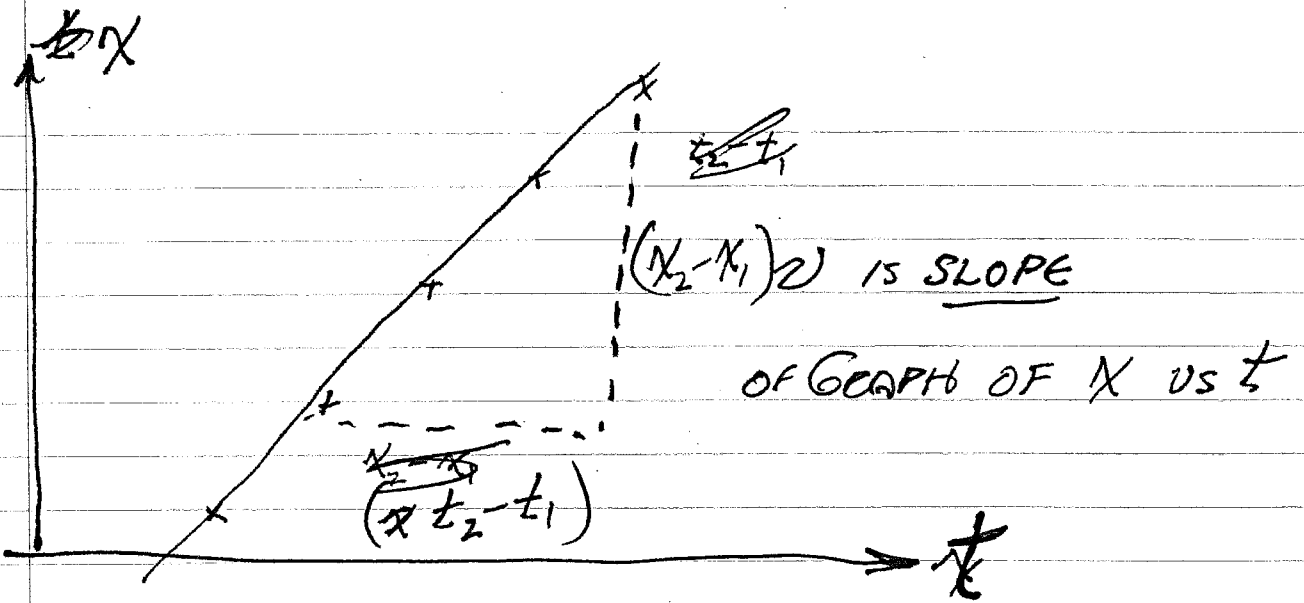 x
t₂-t₁
(x₂-x₁) v IS SLOPE
OF GRAPH OF X VS t
x₂-x₁
(t₂-t₁)
t